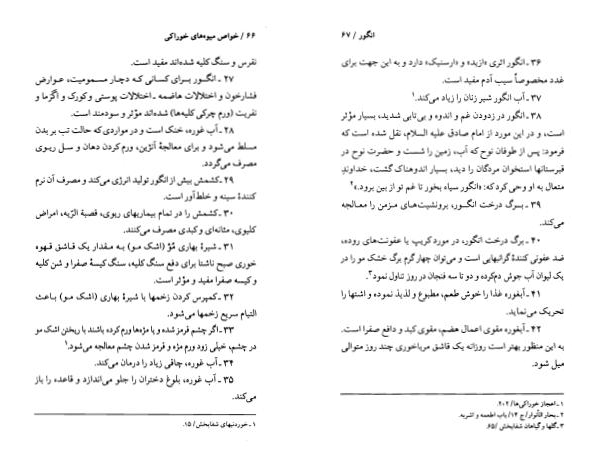 ۶۶ / خواص میوه‌های خوراکی
نقرس و سنگ کلیه شده‌اند مفید است.
۲۷ ـ انگور برای کسانی که دچار مسمومیت، عوارض
فشارخون و اختلالات هاضمه ـ اختلالات پوستی وکورک و اگزما و
نفریت (ورم چرکی کلیه‌ها) شده‌اند مؤثر و سودمند است.
۲۸ ـ آب غوره، خنک است و در مواردی که حالت تب بر بدن
مسلط می‌شود و برای معالجهٔ آنژین، ورم کردن دهان و سل ریوی
مصرف می‌گردد.
۲۹ ـ کشمش بیش از انگور تولید انرژی می‌کند و مصرف آن نرم
کنندهٔ سینه و خلط‌آور است.
۳۰ ـ کشمش را در تمام بیماریهای ریوی، قصبة الرّیه، امراض
کلیوی، مثانه‌ای و کبدی مصرف می‌کنند.
۳۱ ـ شیرهٔ بهاری مُوْ (اشک مو) به مقدار یک قاشق قهوه
خوری صبح ناشتا برای دفع سنگ کلیه، سنگ کیسهٔ صفرا و شن کلیه
و کیسه صفرا مفید و مؤثر است.
۳۲ ـ کمپرس کردن زخمها با شیرهٔ بهاری (اشک مو) باعث
التیام سریع زخمها می‌شود.
۳۳ ـ اگر چشم قرمز شده و یا مژه‌ها ورم کرده باشند با ریختن اشک مو
در چشم، خیلی زود ورم مژه و قرمز شدن چشم معالجه می‌شود.۱
۳۴ ـ آب غوره، چاقی زیاد را درمان می‌کند.
۳۵ ـ آب غوره، بلوغ دختران را جلو می‌اندازد و قاعده را باز
می‌کند.
۱ ـ خوردنیهای شفابخش / ۱۵.
انگور / ۶۷
۳۶ ـ انگور اثری «ازید» و «ارسنیک» دارد و به این جهت برای
غدد مخصوصاً سیب آدم مفید است.
۳۷ ـ آب انگور شیر زنان را زیاد می‌کند.۱
۳۸ ـ انگور در زدودن غم و اندوه و بی‌تابی شدید، بسیار مؤثر
است، و در این مورد از امام صادق علیه السلام، نقل شده است که
فرمود: پس از طوفان نوح که آب، زمین را شست و حضرت نوح در
قبرستانها استخوان مردگان را دید، بسیار اندوهناک گشت، خداوندِ
متعال به او وحی کرد که: «انگور سیاه بخور تا غم تو از بین برود.»۲
۳۹ ـ برگ درخت انگور، برونشیت‌های مزمن را معالجه
می‌کند.
۴۰ ـ برگ درخت انگور، در مورد کریپ یا عفونت‌های روده،
ضد عفونی کنندهٔ گرانبهایی است و می‌توان چهار گرم برگ خشک مو را در
یک لیوان آب جوش دم‌کرده و دو تا سه فنجان در روز تناول نمود.۳
۴۱ ـ آبغوره غذا را خوش طعم، مطبوع و لذیذ نموده و اشتها را
تحریک می‌نماید.
۴۲ ـ آبغوره مقوی اعمال هضم، مقوی کبد و دافع صفرا است.
به این منظور بهتر است روزانه یک قاشق مرباخوری چند روز متوالی
میل شود.
۱ ـ اعجاز خوراکی‌ها / ۲۰۲.
۲ ـ بحار الأنوار / ج ۱۴ / باب اطعمه و اشربه.
۳ ـ گلها و گیاهان شفابخش / ۶۵.